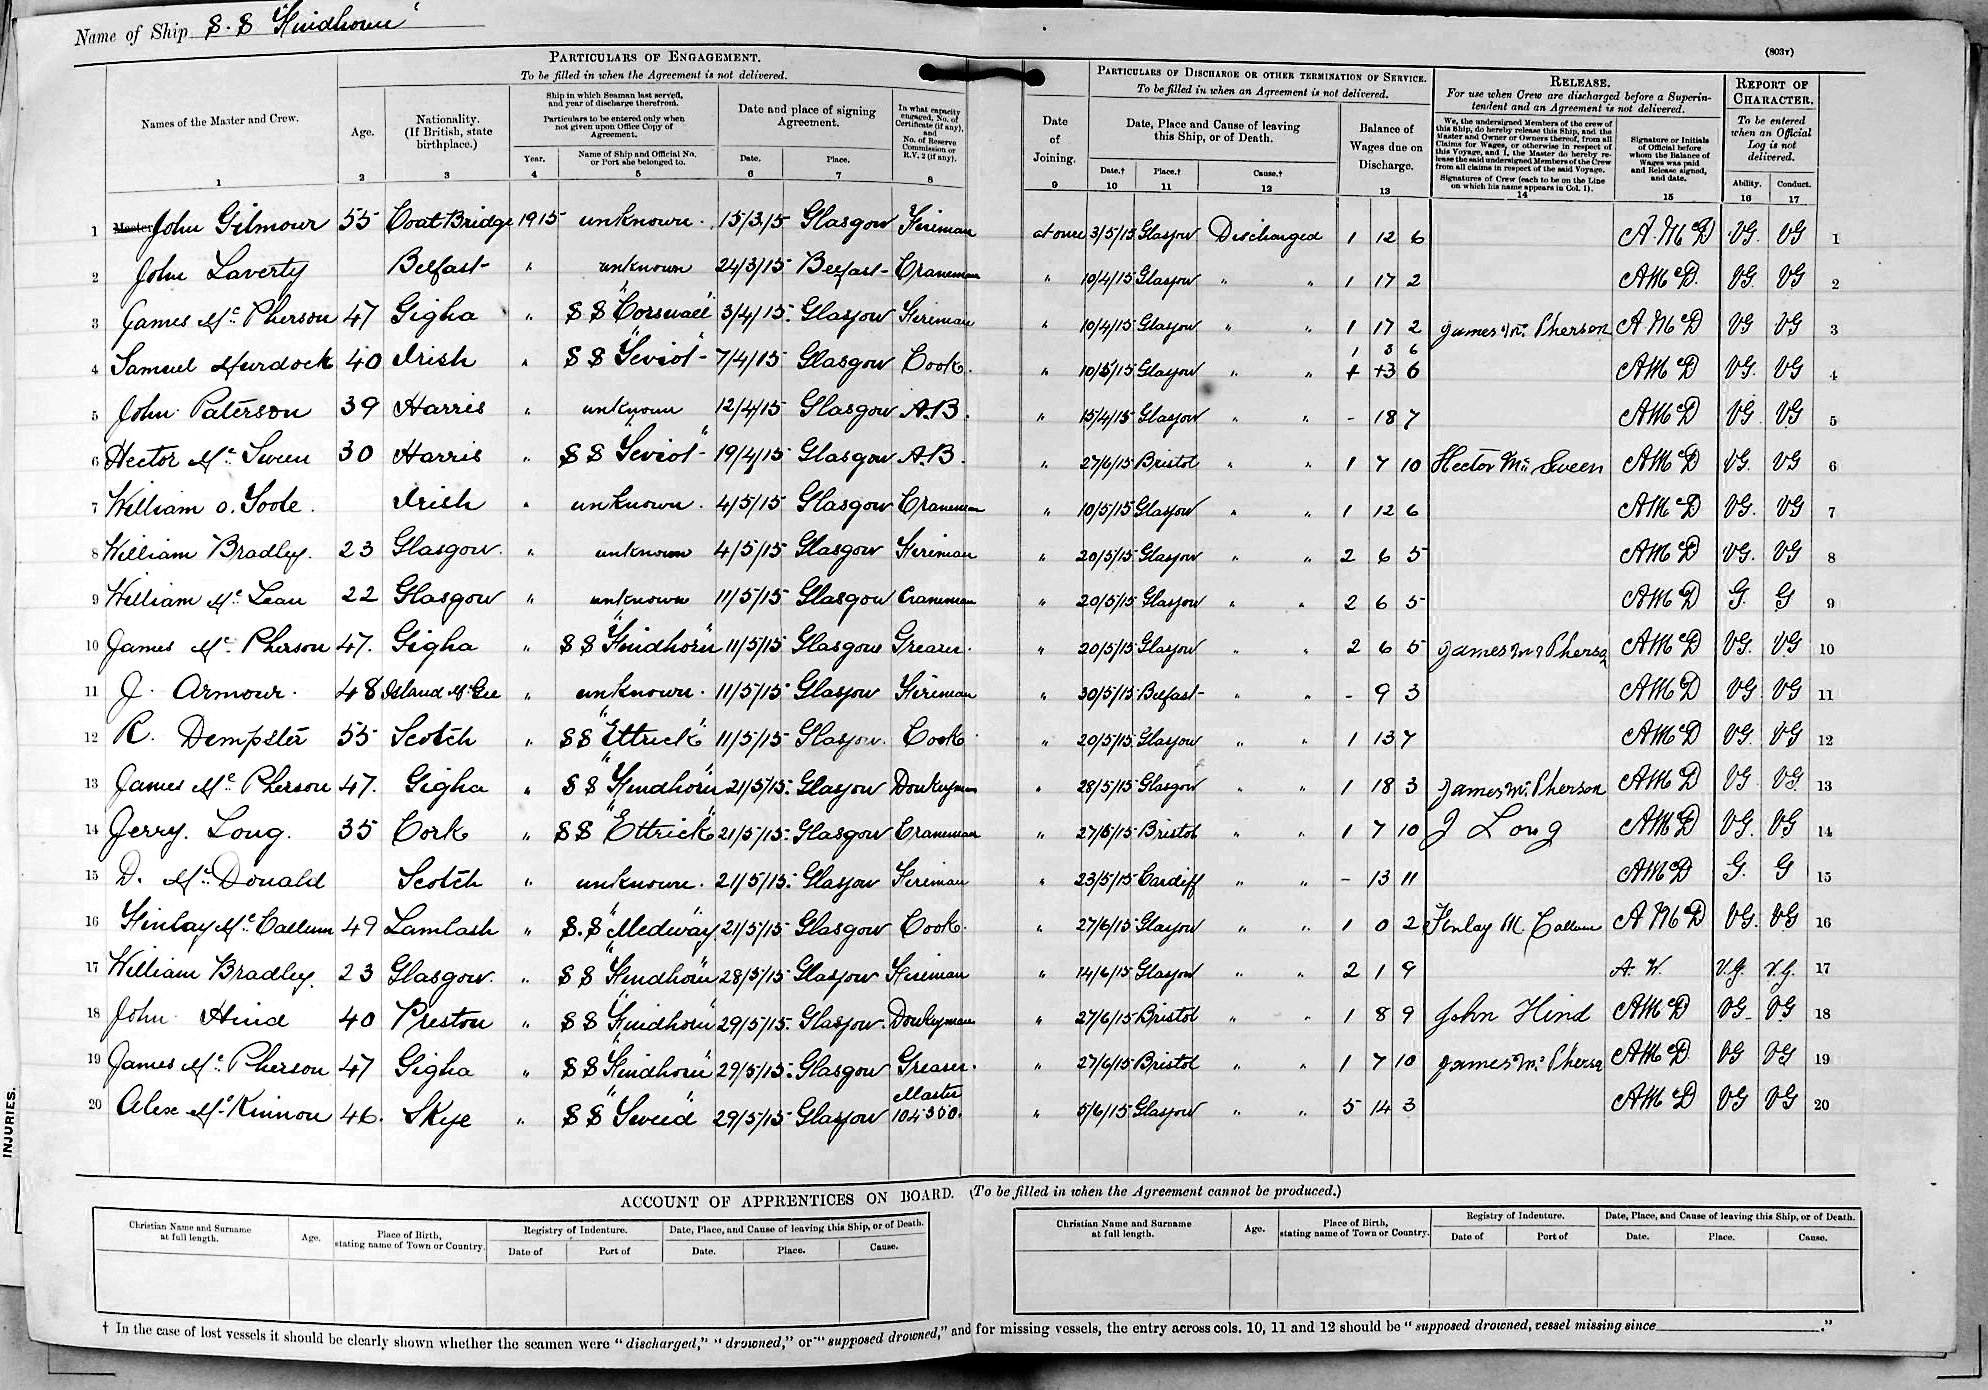 Name of Ship S.S "Findhorn"
(803v)
PARTICULARS OF ENGAGEMENT.
To be filled in when the Agreement is not delivered.
PARTICULARS OF DISCHARGE OR OTHER TERMINATION OF SERVICE.
To be filled in when an Agreement is not delivered.
RELEASE.
For use when Crew are discharged before a Superintendent and an Agreement is not delivered.
REPORT OF CHARACTER.
To be entered when an Official Log is not delivered.
Names of the Master and Crew.
Age.
Nationality. (If British, state birthplace.)
Ship in which Seaman last served, and year of discharge therefrom.
Particulars to be entered only when not given upon Office Copy of Agreement.
Year.
Name of Ship and Official No. or Port she belonged to.
Date and place of signing Agreement.
Date.
Place.
In what capacity engaged, No. of Certificate (if any), and No. of Reserve Commission or R.V. 2 (if any).
Date of Joining.
Date, Place and Cause of leaving this Ship, or of Death.
Date.†
Place.†
Cause.†
Balance of Wages due on Discharge.
We, the undersigned Members of the crew of this Ship, do hereby release this Ship, and the Master and Owner or Owners thereof, from all Claims for Wages, or otherwise in respect of this Voyage, and I, the Master do hereby release the said undersigned Members of the Crew from all claims in respect of the said Voyage.
Signatures of Crew (each to be on the Line on which his name appears in Col. 1).
Signature or Initials of Official before whom the Balance of Wages was paid and Release signed, and date.
Ability.
Conduct.
1 2 3 4 5 6 7 8 9 10 11 12 13 14 15 16 17
1 Master John Gilmour 55 Coat Bridge 1915 unknown. 15/3/15 Glasgow Fireman at once 3/5/15 Glasgow Discharged 1 12 6 A McD VG. VG 1
2 John Laverty Belfast " unknown 24/3/15 Belfast Craneman " 10/4/15 Glasgow " " 1 17 2 AMcD. VG. VG 2
3 James Mc Pherson 47 Gigha " SS "Corswall" 3/4/15. Glasgow Fireman " 10/4/15 Glasgow " " 1 17 2 James Mc Pherson A McD VG VG 3
1 8 6
4 Samuel Murdock 40 Irish " SS "Teviot" 7/4/15 Glasgow Cook. " 10/5/15 Glasgow " " 1 13 6 AMcD VG. VG 4
5 John Paterson 39 Harris " unknown 12/4/15 Glasgow A.B. " 15/4/15 Glasgow " " - 18 7 AMcD VG VG 5
6 Hector Mc Sween 30 Harris " SS "Teviot" 19/4/15 Glasgow A.B. " 27/6/15 Bristol " " 1 7 10 Hector Mc Sween AMcD VG. VG 6
7 William O. Toole. Irish " unknown. 4/5/15 Glasgow Craneman " 10/5/15 Glasgow " " 1 12 6 AMcD VG. VG 7
8 William Bradley. 23 Glasgow. " unknown 4/5/15 Glasgow Fireman " 20/5/15 Glasgow " " 2 6 5 AMcD VG. VG 8
9 William Mc Lean 22 Glasgow " unknown 11/5/15 Glasgow Craneman " 20/5/15 Glasgow " " 2 6 5 AMcD G. G 9
10 James Mc Pherson 47. Gigha " SS "Findhorn" 11/5/15 Glasgow Greaser. " 20/5/15 Glasgow " " 2 6 5 James Mc Pherson AMcD VG. VG 10
11 J. Armour. 48 Island McGee " unknown. 11/5/15 Glasgow Fireman " 30/5/15 Belfast " " - 9 3 AMcD VG VG 11
12 R. Dempster 55 Scotch " SS "Ettrick" 11/5/15 Glasgow. Cook " 20/5/15 Glasgow " " 1 13 7 AMcD VG. VG 12
13 James Mc Pherson 47. Gigha " SS "Findhorn" 21/5/15. Glasgow Donkeyman " 28/5/15 Glasgow " " 1 18 3 James Mc Pherson AMcD VG VG. 13
14 Jerry. Long. 35 Cork " SS "Ettrick" 21/5/15. Glasgow Craneman " 27/6/15 Bristol " " 1 7 10 J Long AMcD VG. VG 14
15 D. Mc Donald Scotch " unknown. 21/5/15. Glasgow Fireman " 23/5/15 Cardiff " " - 13 11 AMcD G. G 15
16 Finlay Mc Callum 49 Lamlash " S.S "Medway" 21/5/15 Glasgow Cook. " 27/6/15 Glasgow " " 1 0 2 Finlay Mc Callum A McD VG. VG 16
17 William Bradley. 23 Glasgow. " SS "Findhorn" 28/5/15 Glasgow Fireman " 14/6/15 Glasgow " " 2 1 9 A. W. V.G. V.G. 17
18 John Hind 40 Preston " SS "Findhorn" 29/5/15. Glasgow. Donkeyman " 27/6/15 Bristol " " 1 8 9 John Hind AMcD VG VG 18
19 James Mc Pherson 47 Gigha " SS "Findhorn" 29/5/15. Glasgow Greaser. " 27/6/15 Bristol " " 1 7 10 James Mc Pherson AMcD VG VG 19
20 Alex McKinnon 46. Skye " SS "Tweed" 29/5/15 Glasgow Master 104350. " 5/6/15 Glasgow " " 5 14 3 AMcD VG VG 20
INJURIES.
ACCOUNT OF APPRENTICES ON BOARD. (To be filled in when the Agreement cannot be produced.)
Christian Name and Surname at full length.
Age.
Place of Birth, stating name of Town or Country.
Registry of Indenture.
Date of
Port of
Date, Place, and Cause of leaving this Ship, or of Death.
Date.
Place.
Cause.
Christian Name and Surname at full length.
Age.
Place of Birth, stating name of Town or Country.
Registry of Indenture.
Date of
Port of
Date, Place, and Cause of leaving this Ship, or of Death.
Date.
Place.
Cause.
† In the case of lost vessels it should be clearly shown whether the seamen were "discharged," "drowned," or "supposed drowned," and for missing vessels, the entry across cols. 10, 11 and 12 should be "supposed drowned, vessel missing since ."